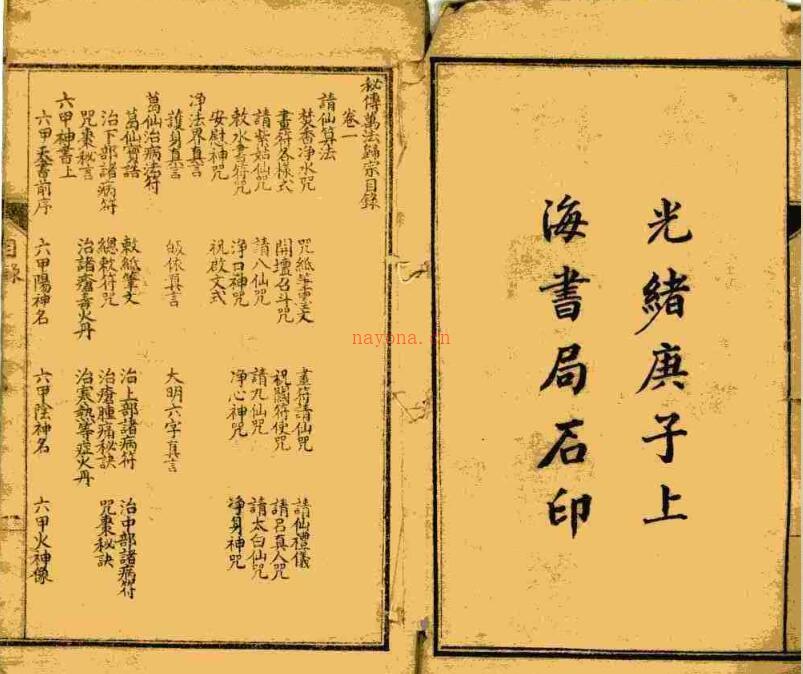 光緒庚子上
海書局石印
秘傳萬法歸宗目錄
卷一
請仙算法
焚香净水咒 咒紙筆墨文 畫符請仙咒 請仙禮儀
畫符各樣式 開壇召斗咒 祝關符使咒 請呂真人咒
請紫姑仙咒 請八仙咒 請九仙咒 請太白仙咒
敕水書符咒 净口神咒 净心神咒 净身神咒
安慰神咒 祝啟文式
净法界真言
護身真言 皈依真言 大明六字真言
葛仙治病法符
葛仙寶誥 敕紙筆文 治上部諸病符 治中部諸病符
治下部諸病符 總敕符咒 治瘡腫痛秘訣 咒棗秘訣
咒棗秘言 治諸瘡毒火丹 治寒熱等症火丹
六甲神書上
六甲天書前序 六甲陽神名 六甲陰神名 六甲火神像
目錄
nayona.cn